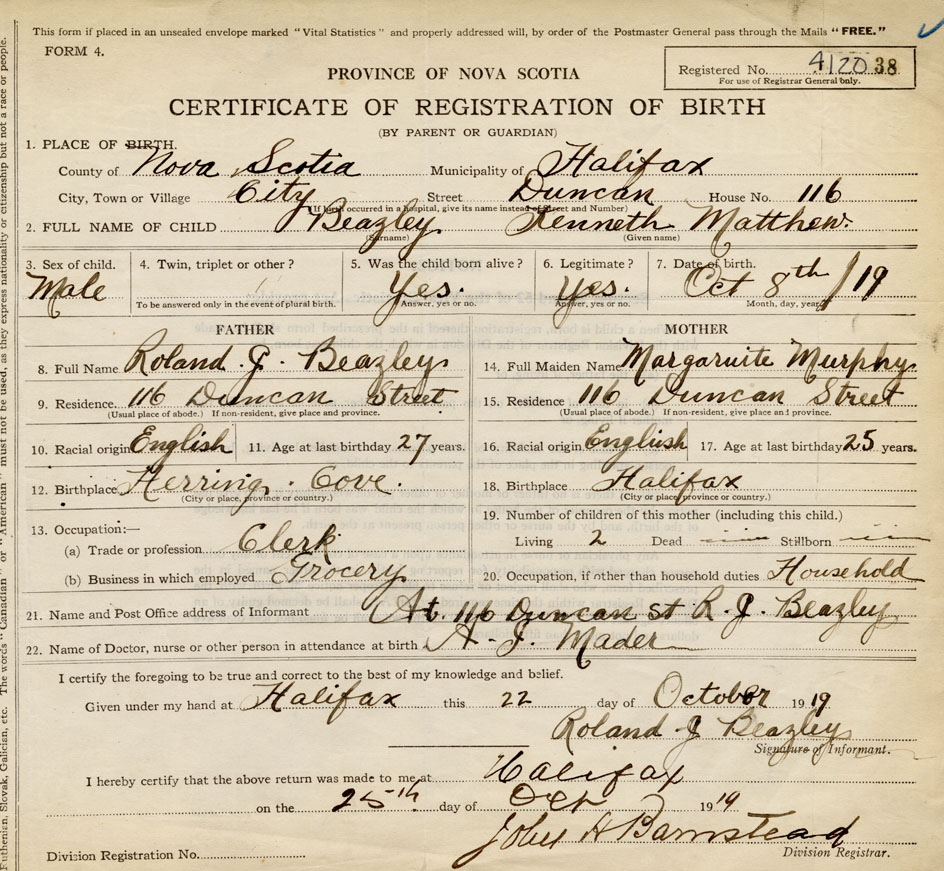 This form if placed in an unsealed envelope marked "Vital Statistics" and properly addressed will, by order of the Postmaster General pass through the Mails "FREE."
FORM 4.
Registered No. 4120 38
For use of Registrar General only.
PROVINCE OF NOVA SCOTIA
CERTIFICATE OF REGISTRATION OF BIRTH
(BY PARENT OR GUARDIAN)
1. PLACE OF BIRTH.
County of Nova Scotia Municipality of Halifax
City, Town or Village City Street Duncan House No. 116
(If birth occurred in a hospital, give its name instead of Street and Number)
2. FULL NAME OF CHILD Beazley Kenneth Matthew.
(Surname) (Given name)
3. Sex of child. 4. Twin, triplet or other? 5. Was the child born alive? 6. Legitimate? 7. Date of birth.
Male Yes. Yes. Oct 8th /19
To be answered only in the event of plural birth. Answer, yes or no. Answer, yes or no. Month, day, year
FATHER MOTHER
8. Full Name Roland J. Beazley 14. Full Maiden Name Margaruite Murphy
9. Residence. 116 Duncan Street 15. Residence 116 Duncan Street
(Usual place of abode.) If non-resident, give place and province. (Usual place of abode.) If non-resident, give place and province.
10. Racial origin English 11. Age at last birthday 27 years. 16. Racial origin English 17. Age at last birthday 25 years.
12. Birthplace Herring Cove. 18. Birthplace Halifax
(City or place, province or country.) (City or place, province or country.)
13. Occupation:— 19. Number of children of this mother (including this child.)
(a) Trade or profession Clerk Living 2 Dead — Stillborn —
(b) Business in which employed Grocery 20. Occupation, if other than household duties Household
21. Name and Post Office address of Informant At. 116 Duncan St R. J. Beazley
22. Name of Doctor, nurse or other person in attendance at birth A. I. Mader
I certify the foregoing to be true and correct to the best of my knowledge and belief.
Given under my hand at Halifax this 22 day of October 1919
Roland J Beazley
Signature of Informant.
I hereby certify that the above return was made to me at Halifax
on the 25th day of Oct 1919
John H Barnstead
Division Registrar.
Division Registration No.
Ruthenian, Slovak, Galician, etc. The words "Canadian" or "American" must not be used, as they express nationality or citizenship but not a race or people.